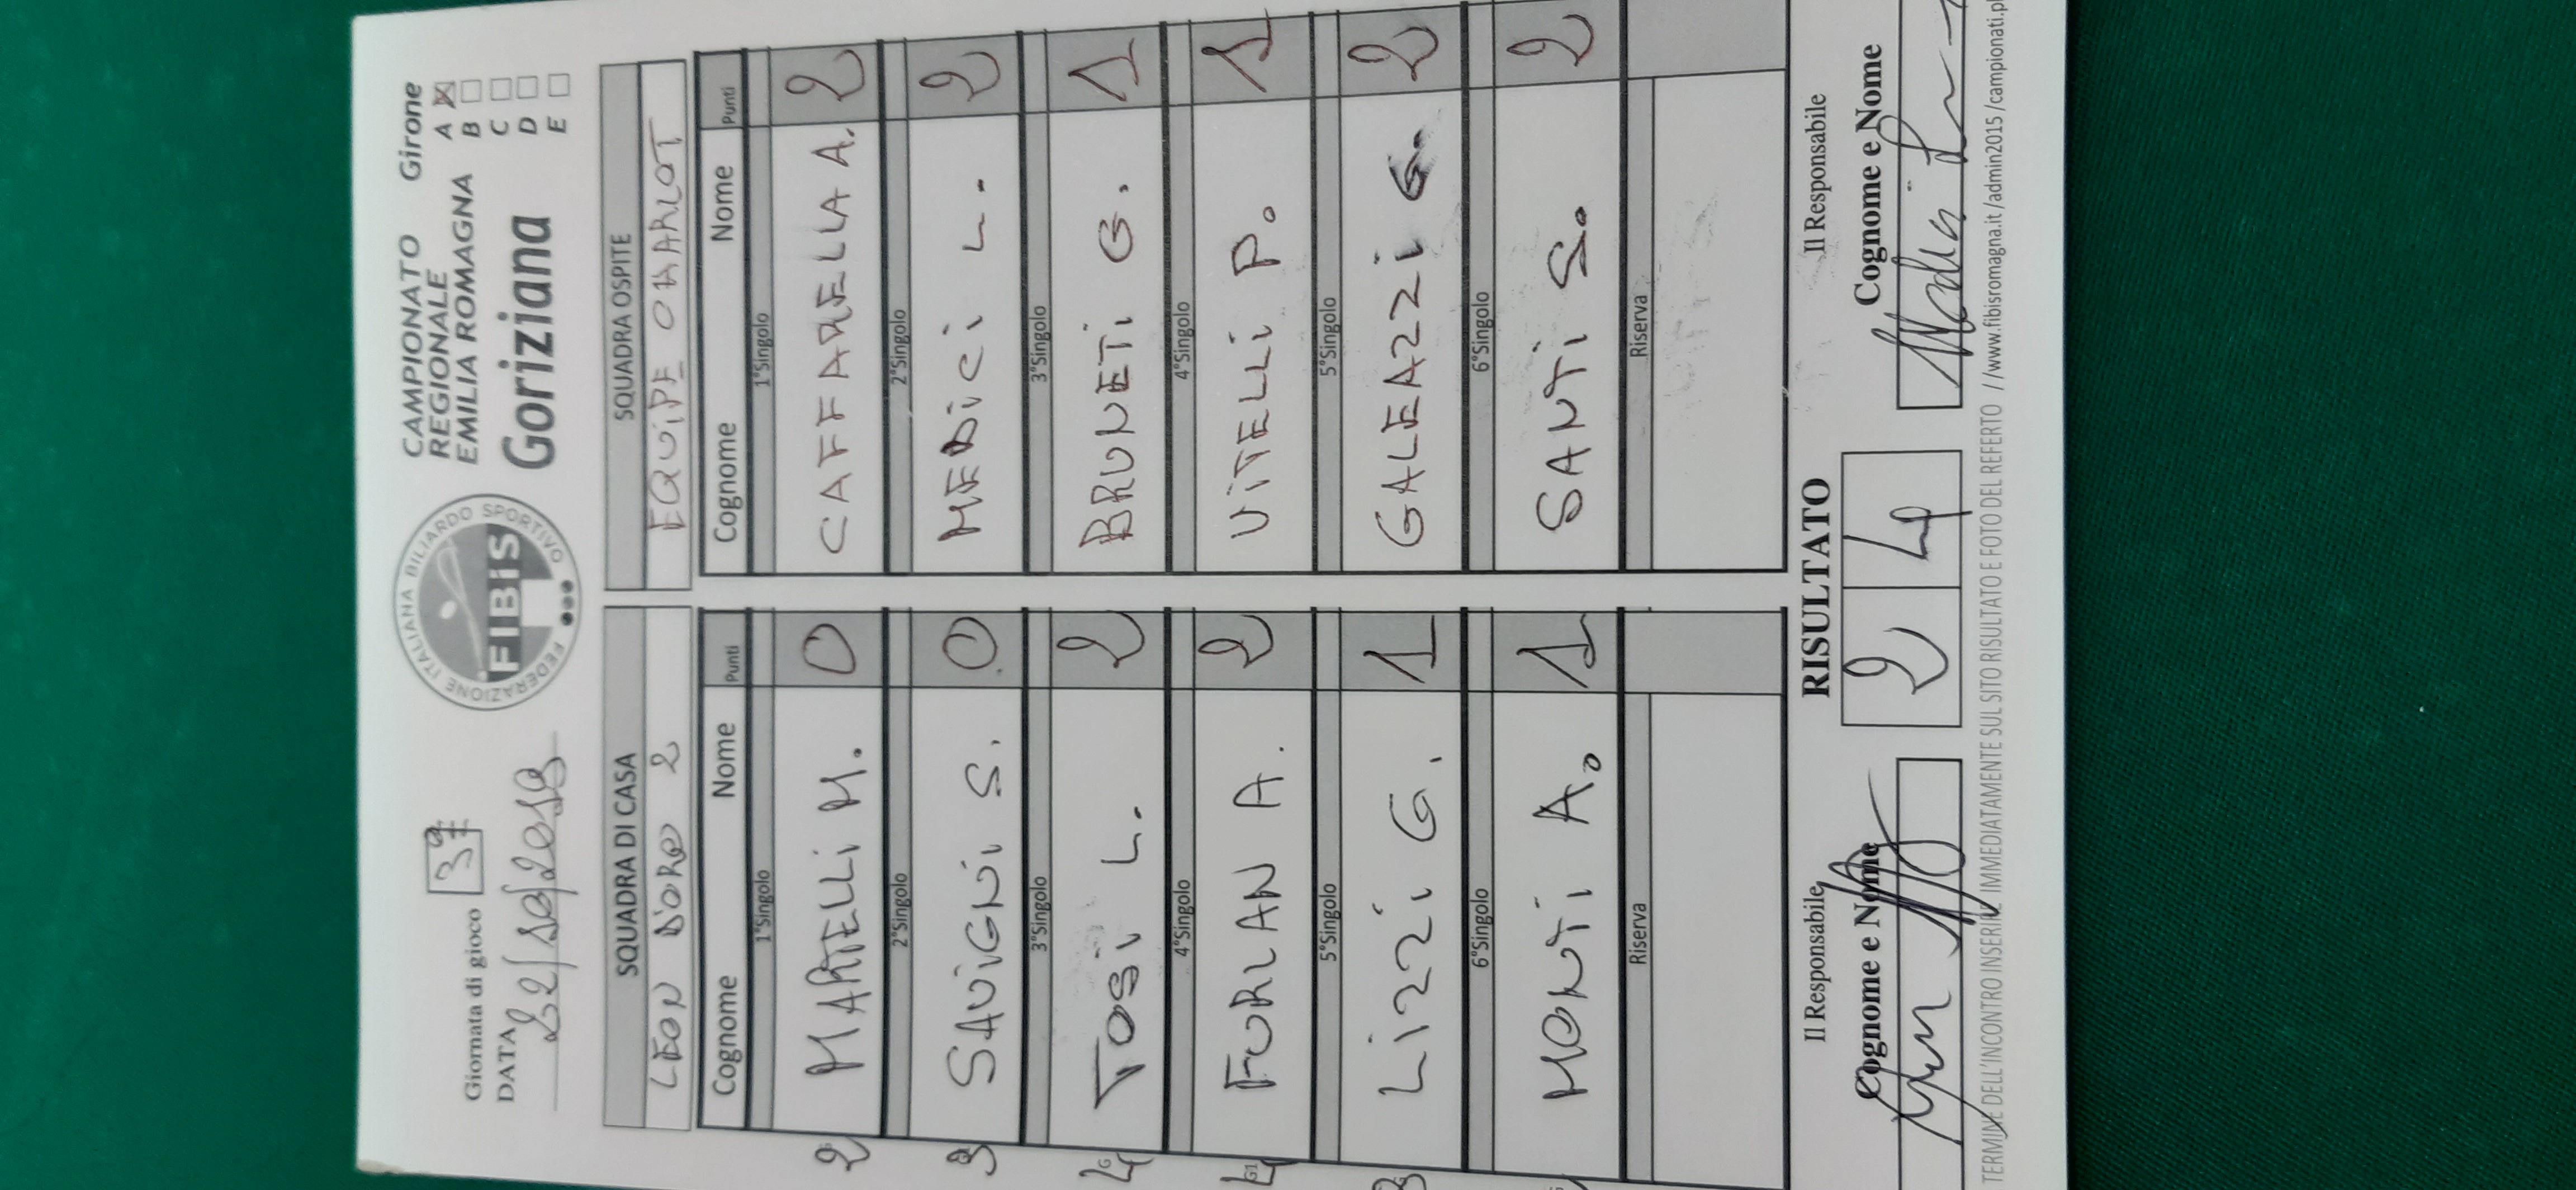 Giornata di gioco 3ª
DATA 22/10/2019
FEDERAZIONE ITALIANA BILIARDO SPORTIVO
FIBiS
CAMPIONATO
REGIONALE
EMILIA ROMAGNA
Goriziana
Girone
A X
B
C
D
E
SQUADRA DI CASA
LEON D'ORO 2
Cognome Nome Punti
1°Singolo
MARTELLi M. 0
2°Singolo
SAViGNi S. 0
3°Singolo
TOSi L. 2
4°Singolo
FORLAN A. 2
5°Singolo
LiZZi G. 1
6°Singolo
MONTi A. 1
Riserva
SQUADRA OSPITE
EQUiPE CHARLOT
Cognome Nome Punti
1°Singolo
CAFFARELLA A. 2
2°Singolo
MEDiCi L. 2
3°Singolo
BRUNETi G. 1
4°Singolo
ViTELLi P. 1
5°Singolo
GALEAZZi G. 2
6°Singolo
SANTi S. 2
Riserva
Il Responsabile
Cognome e Nome
RISULTATO
2 4
Il Responsabile
Cognome e Nome
TERMINE DELL'INCONTRO INSERIRE IMMEDIATAMENTE SUL SITO RISULTATO E FOTO DEL REFERTO //www.fibisromagna.it/admin2015/campionati.p